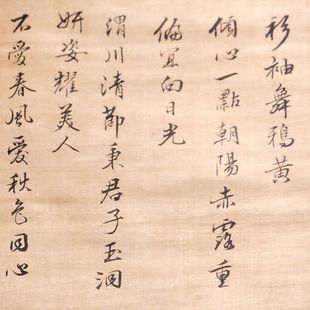 衫袖舞鴉黃
傾心一點朝陽赤露重
偏宜向日光
渭川清節秉君子玉洞
妍姿耀美人
不愛春風愛秋色同心